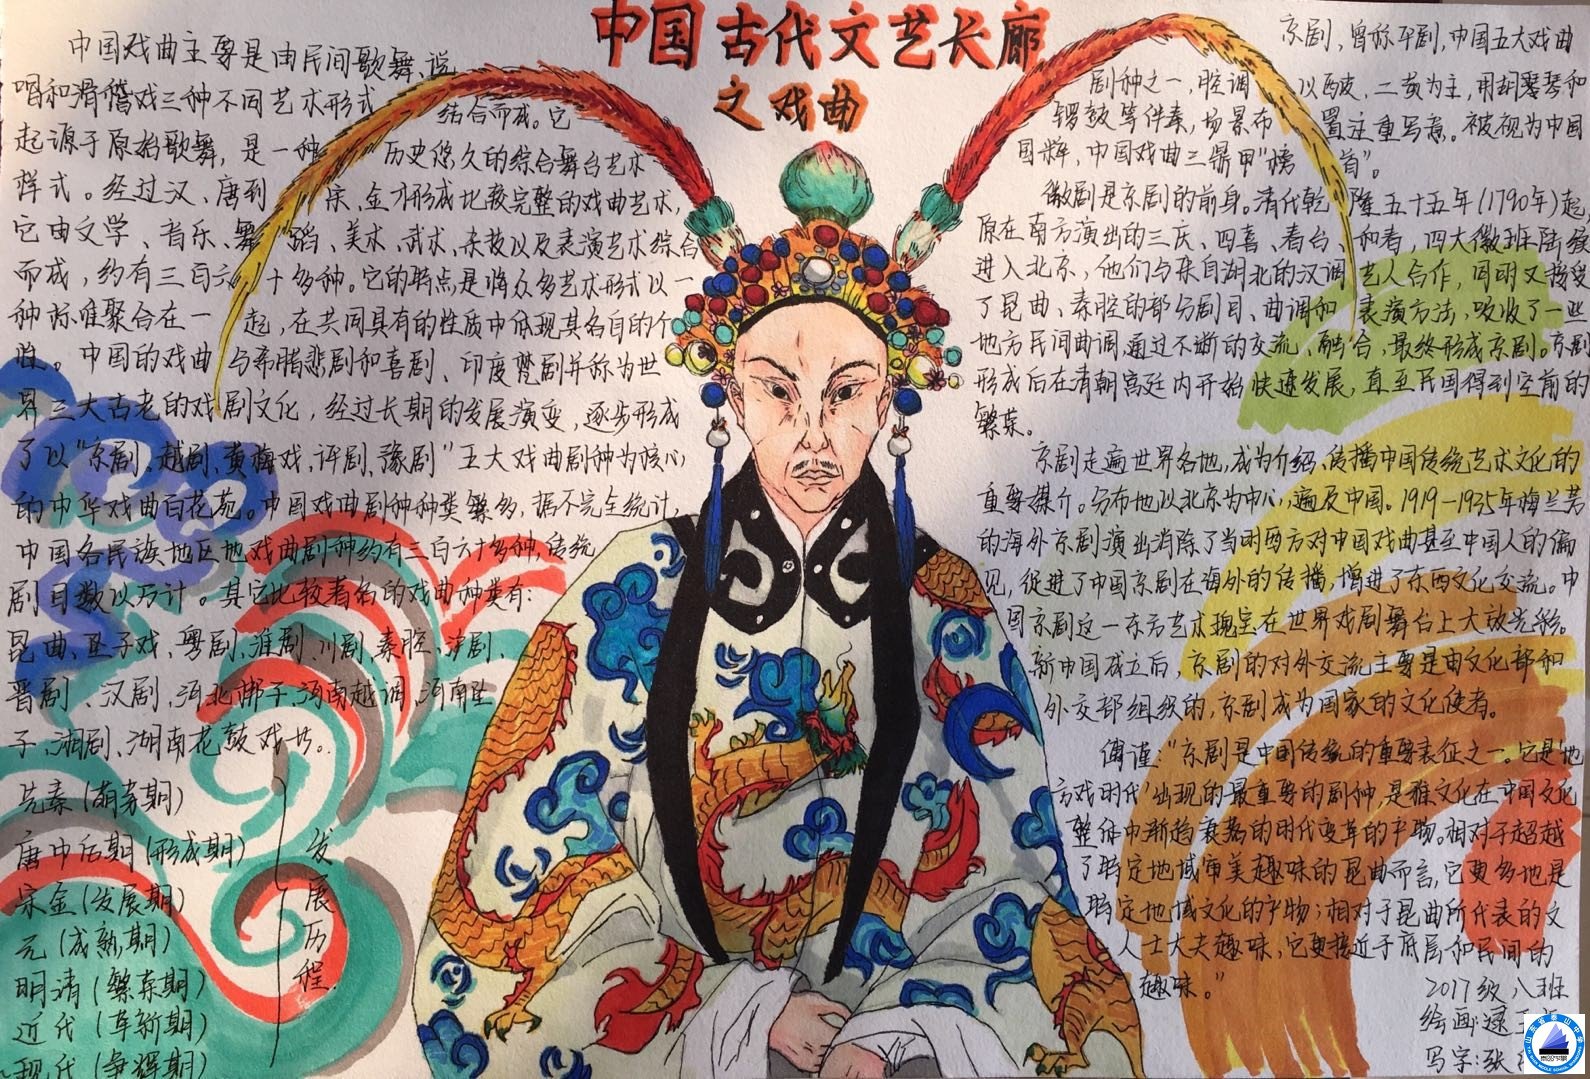 中国古代文艺长廊
之戏曲
中国戏曲主要是由民间歌舞、说
唱和滑稽戏三种不同艺术形式
结合而成。它
起源于原始歌舞，是一种历史悠久的综合舞台艺术
样式。经过汉、唐到宋、金才形成比较完整的戏曲艺术，
它由文学、音乐、舞蹈、美术、武术、杂技以及表演艺术综合
而成，约有三百六十多种。它的特点是将众多艺术形式以一
种标准聚合在一起，在共同具有的性质中体现其各自的个
性。中国的戏曲与希腊悲剧和喜剧、印度梵剧并称为世
界三大古老的戏剧文化，经过长期的发展演变，逐步形成
了以“京剧、越剧、黄梅戏、评剧、豫剧”五大戏曲剧种为核心
的中华戏曲百花苑。中国戏曲剧种种类繁多，据不完全统计，
中国各民族地区地戏曲剧种约有三百六十多种，传统
剧目数以万计。其它比较著名的戏曲种类有：
昆曲、坠子戏、粤剧、淮剧、川剧、秦腔、沪剧、
晋剧、汉剧、河北梆子、河南越调、河南坠
子、湘剧、湖南花鼓戏等。
先秦（萌芽期）
唐中后期（形成期）
宋金（发展期）
元（成熟期）
明清（繁荣期）
近代（革新期）
现代（争辉期）
发展历程
京剧，曾称平剧，中国五大戏曲
剧种之一，腔调以西皮、二黄为主，用胡琴和
锣鼓等伴奏，场景布置注重写意。被视为中国
国粹，中国戏曲三鼎甲“榜首”。
徽剧是京剧的前身。清代乾隆五十五年（1790年）起
原在南方演出的三庆、四喜、春台、和春，四大徽班陆续
进入北京，他们与来自湖北的汉调艺人合作，同时又接受
了昆曲、秦腔的部分剧目、曲调和表演方法，吸收了一些
地方民间曲调，通过不断的交流、融合，最终形成京剧。京剧
形成后在清朝宫廷内开始快速发展，直至民国得到空前的
繁荣。
京剧走遍世界各地，成为介绍、传播中国传统艺术文化的
重要媒介。分布地以北京为中心，遍及中国。1919—1935年梅兰芳
的海外京剧演出消除了当时西方对中国戏曲甚至中国人的偏
见，促进了中国京剧在海外的传播，增进了东西文化交流。中
国京剧这一东方艺术瑰宝在世界戏剧舞台上大放光彩。
新中国成立后，京剧的对外交流主要是由文化部和
外交部组织的，京剧成为国家的文化使者。
傅谨：“京剧是中国传统的重要表征之一。它是‘地
方戏时代’出现的最重要的剧种，是雅文化在中国文化
整体中渐趋衰落的时代变革的产物。相对于超越
了特定地域审美趣味的昆曲而言，它更多地是
特定地域文化的产物；相对于昆曲所代表的文
人士大夫趣味，它更接近于底层和民间的
趣味。”
2017级八班
绘画:逯
写字:张